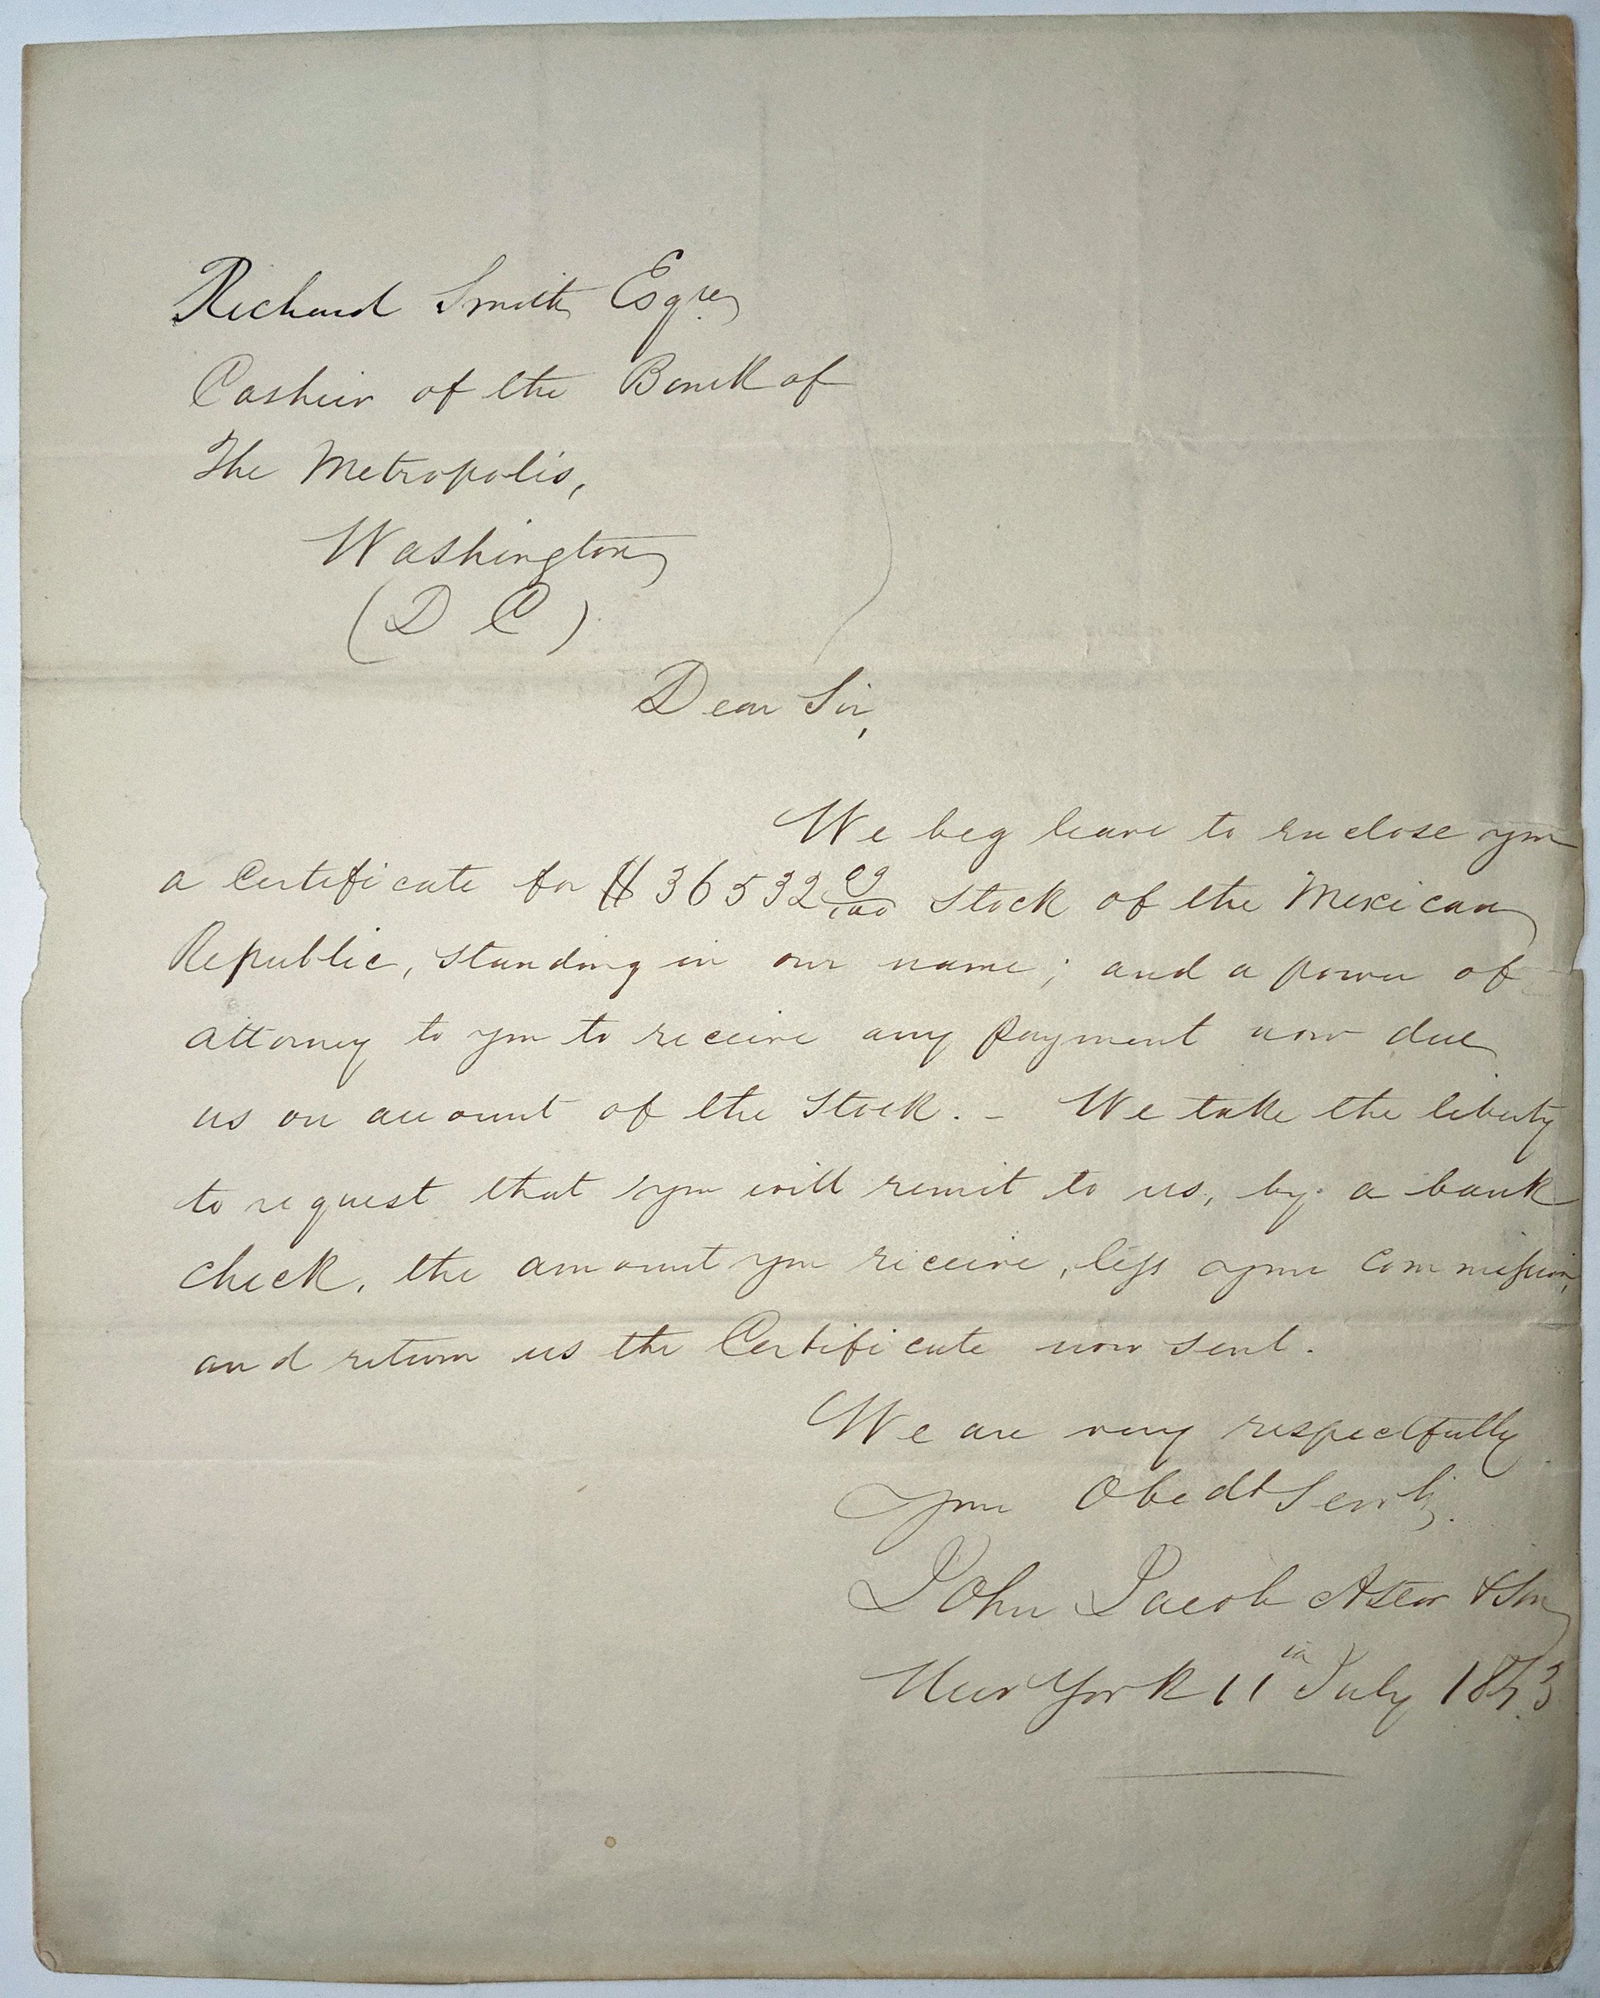 Richard Smith Esqre
Cashier of the Bank of
The Metropolis,
Washington
(D C)
Dear Sir,
We beg leave to enclose you
a Certificate for $36532 09/100 Stock of the Mexican
Republic, standing in our name; and a power of
attorney to you to receive any payment now due
us on account of the Stock. - We take the liberty
to request that you will remit to us, by a bank
check, the amount you receive, less your Commission,
and return us the Certificate now sent.
We are very respectfully
your Obedt Servts.
John Jacob Astor & Son
New York 11th July 1843